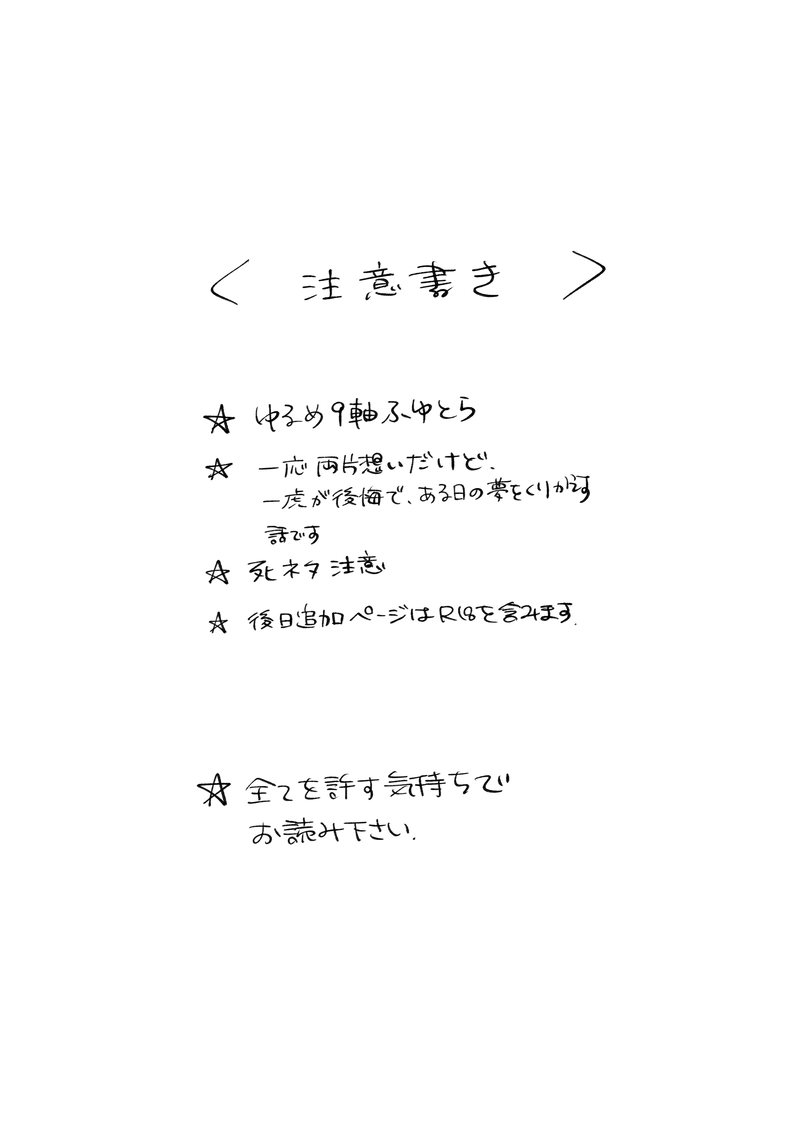 < 注意書き >
☆ ゆるめ9軸ふゆとら
☆ 一応両片想いだけど、
一虎が後悔で、ある日の夢をくりかえす
話です
☆ 死ネタ注意
☆ 後日追加ページはR18を含みます.
☆ 全てを許す気持ちで
お読み下さい.